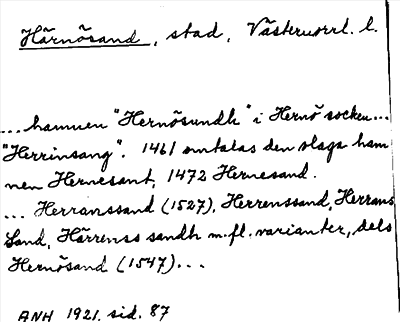 Härnösand, stad, Västernorrl. l.
... hamnen "Hernösundh" i Hernö socken...
"Herrinsang". 1461 omtalas den slags ham
nen Hernesant, 1472 Hernesand.
... Herranssand (1527), Herrenssand, Herrans
Sand, Härrenss sandh m.fl. varianter, dels
Hernösand (1547)...
ANH 1921, sid. 87